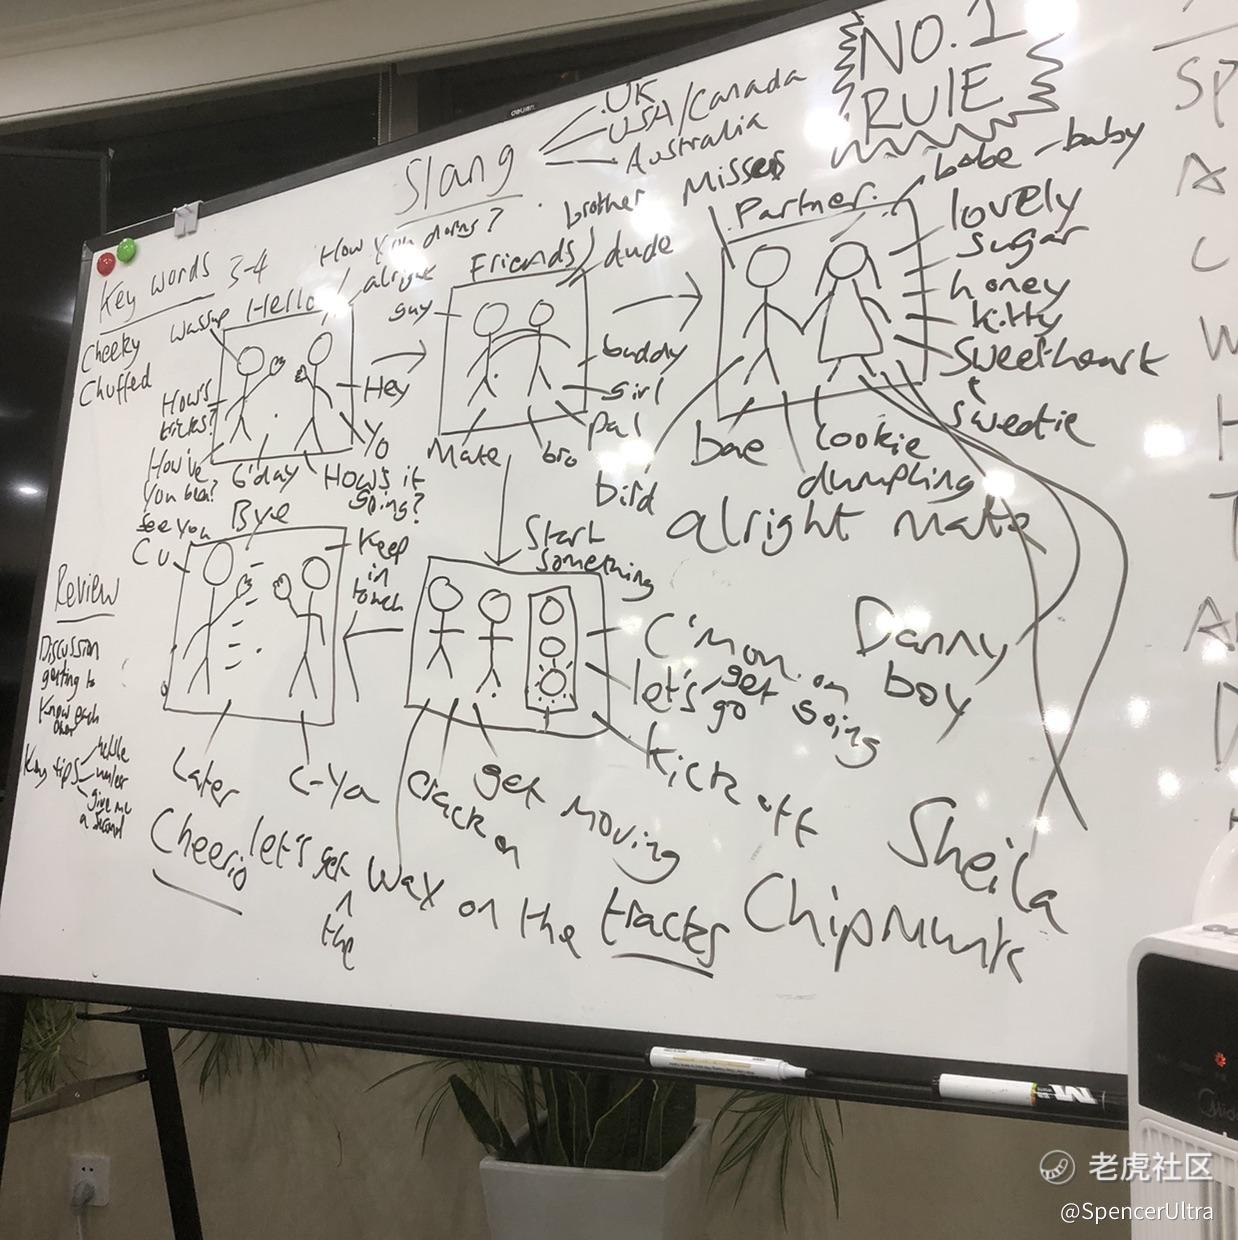 NO.1
RULE
Slang
.UK
USA/Canada
Australia
Key words 3-4
Cheeky
Chuffed
Hello
How you doing?
alright
wassup
Hey
Yo
How's
tricks?
How've
you been?
G'day
How's it
going?
Friends
brother
dude
guy
buddy
girl
pal
bro
Mate
Partner
Misses
babe - baby
lovely
sugar
honey
kitty
Sweetheart
sweetie
cookie
dumpling
bae
bird
alright mate
Danny
boy
Sheila
Chipmunk
Start
something
C'mon
let's go
get going
Kick off
get moving
crack on
let's get the wax on the tracks
Bye
See you
C U
Keep
in
touch
Later
C-Ya
Cheerio
Review
Discussion
getting to
Know each
other
Key tips
give me
a second
SP
A
C
W
H
T
deli
老虎社区
@SpencerUltra